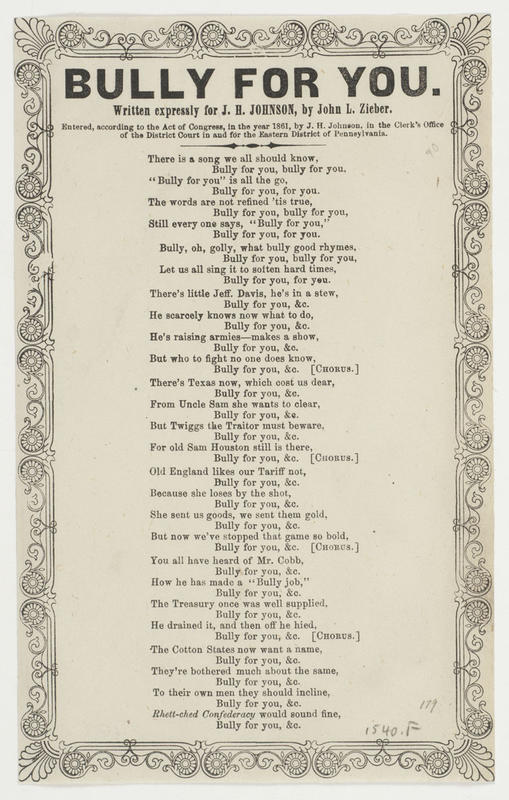 BULLY FOR YOU.
Written expressly for J. H. JOHNSON, by John L. Zieber.
Entered, according to the Act of Congress, in the year 1861, by J. H. Johnson, in the Clerk's Office
of the District Court in and for the Eastern District of Pennsylvania.
There is a song we all should know,
Bully for you, bully for you,
"Bully for you" is all the go,
Bully for you, for you.
The words are not refined 'tis true,
Bully for you, bully for you,
Still every one says, "Bully for you,"
Bully for you, for you.
Bully, oh, golly, what bully good rhymes,
Bully for you, bully for you,
Let us all sing it to soften hard times,
Bully for you, for you.
There's little Jeff. Davis, he's in a stew,
Bully for you, &c.
He scarcely knows now what to do,
Bully for you, &c.
He's raising armies—makes a show,
Bully for you, &c.
But who to fight no one does know,
Bully for you, &c. [CHORUS.]
There's Texas now, which cost us dear,
Bully for you, &c.
From Uncle Sam she wants to clear,
Bully for you, &c.
But Twiggs the Traitor must beware,
Bully for you, &c.
For old Sam Houston still is there,
Bully for you, &c. [CHORUS.]
Old England likes our Tariff not,
Bully for you, &c.
Because she loses by the shot,
Bully for you, &c.
She sent us goods, we sent them gold,
Bully for you, &c.
But now we've stopped that game so bold,
Bully for you, &c. [CHORUS.]
You all have heard of Mr. Cobb,
Bully for you, &c.
How he has made a "Bully job,"
Bully for you, &c.
The Treasury once was well supplied,
Bully for you, &c.
He drained it, and then off he hied,
Bully for you, &c. [CHORUS.]
The Cotton States now want a name,
Bully for you, &c.
They're bothered much about the same,
Bully for you, &c.
To their own men they should incline,
Bully for you, &c.
Rhett-ched Confederacy would sound fine,
Bully for you, &c.
179
1540.F